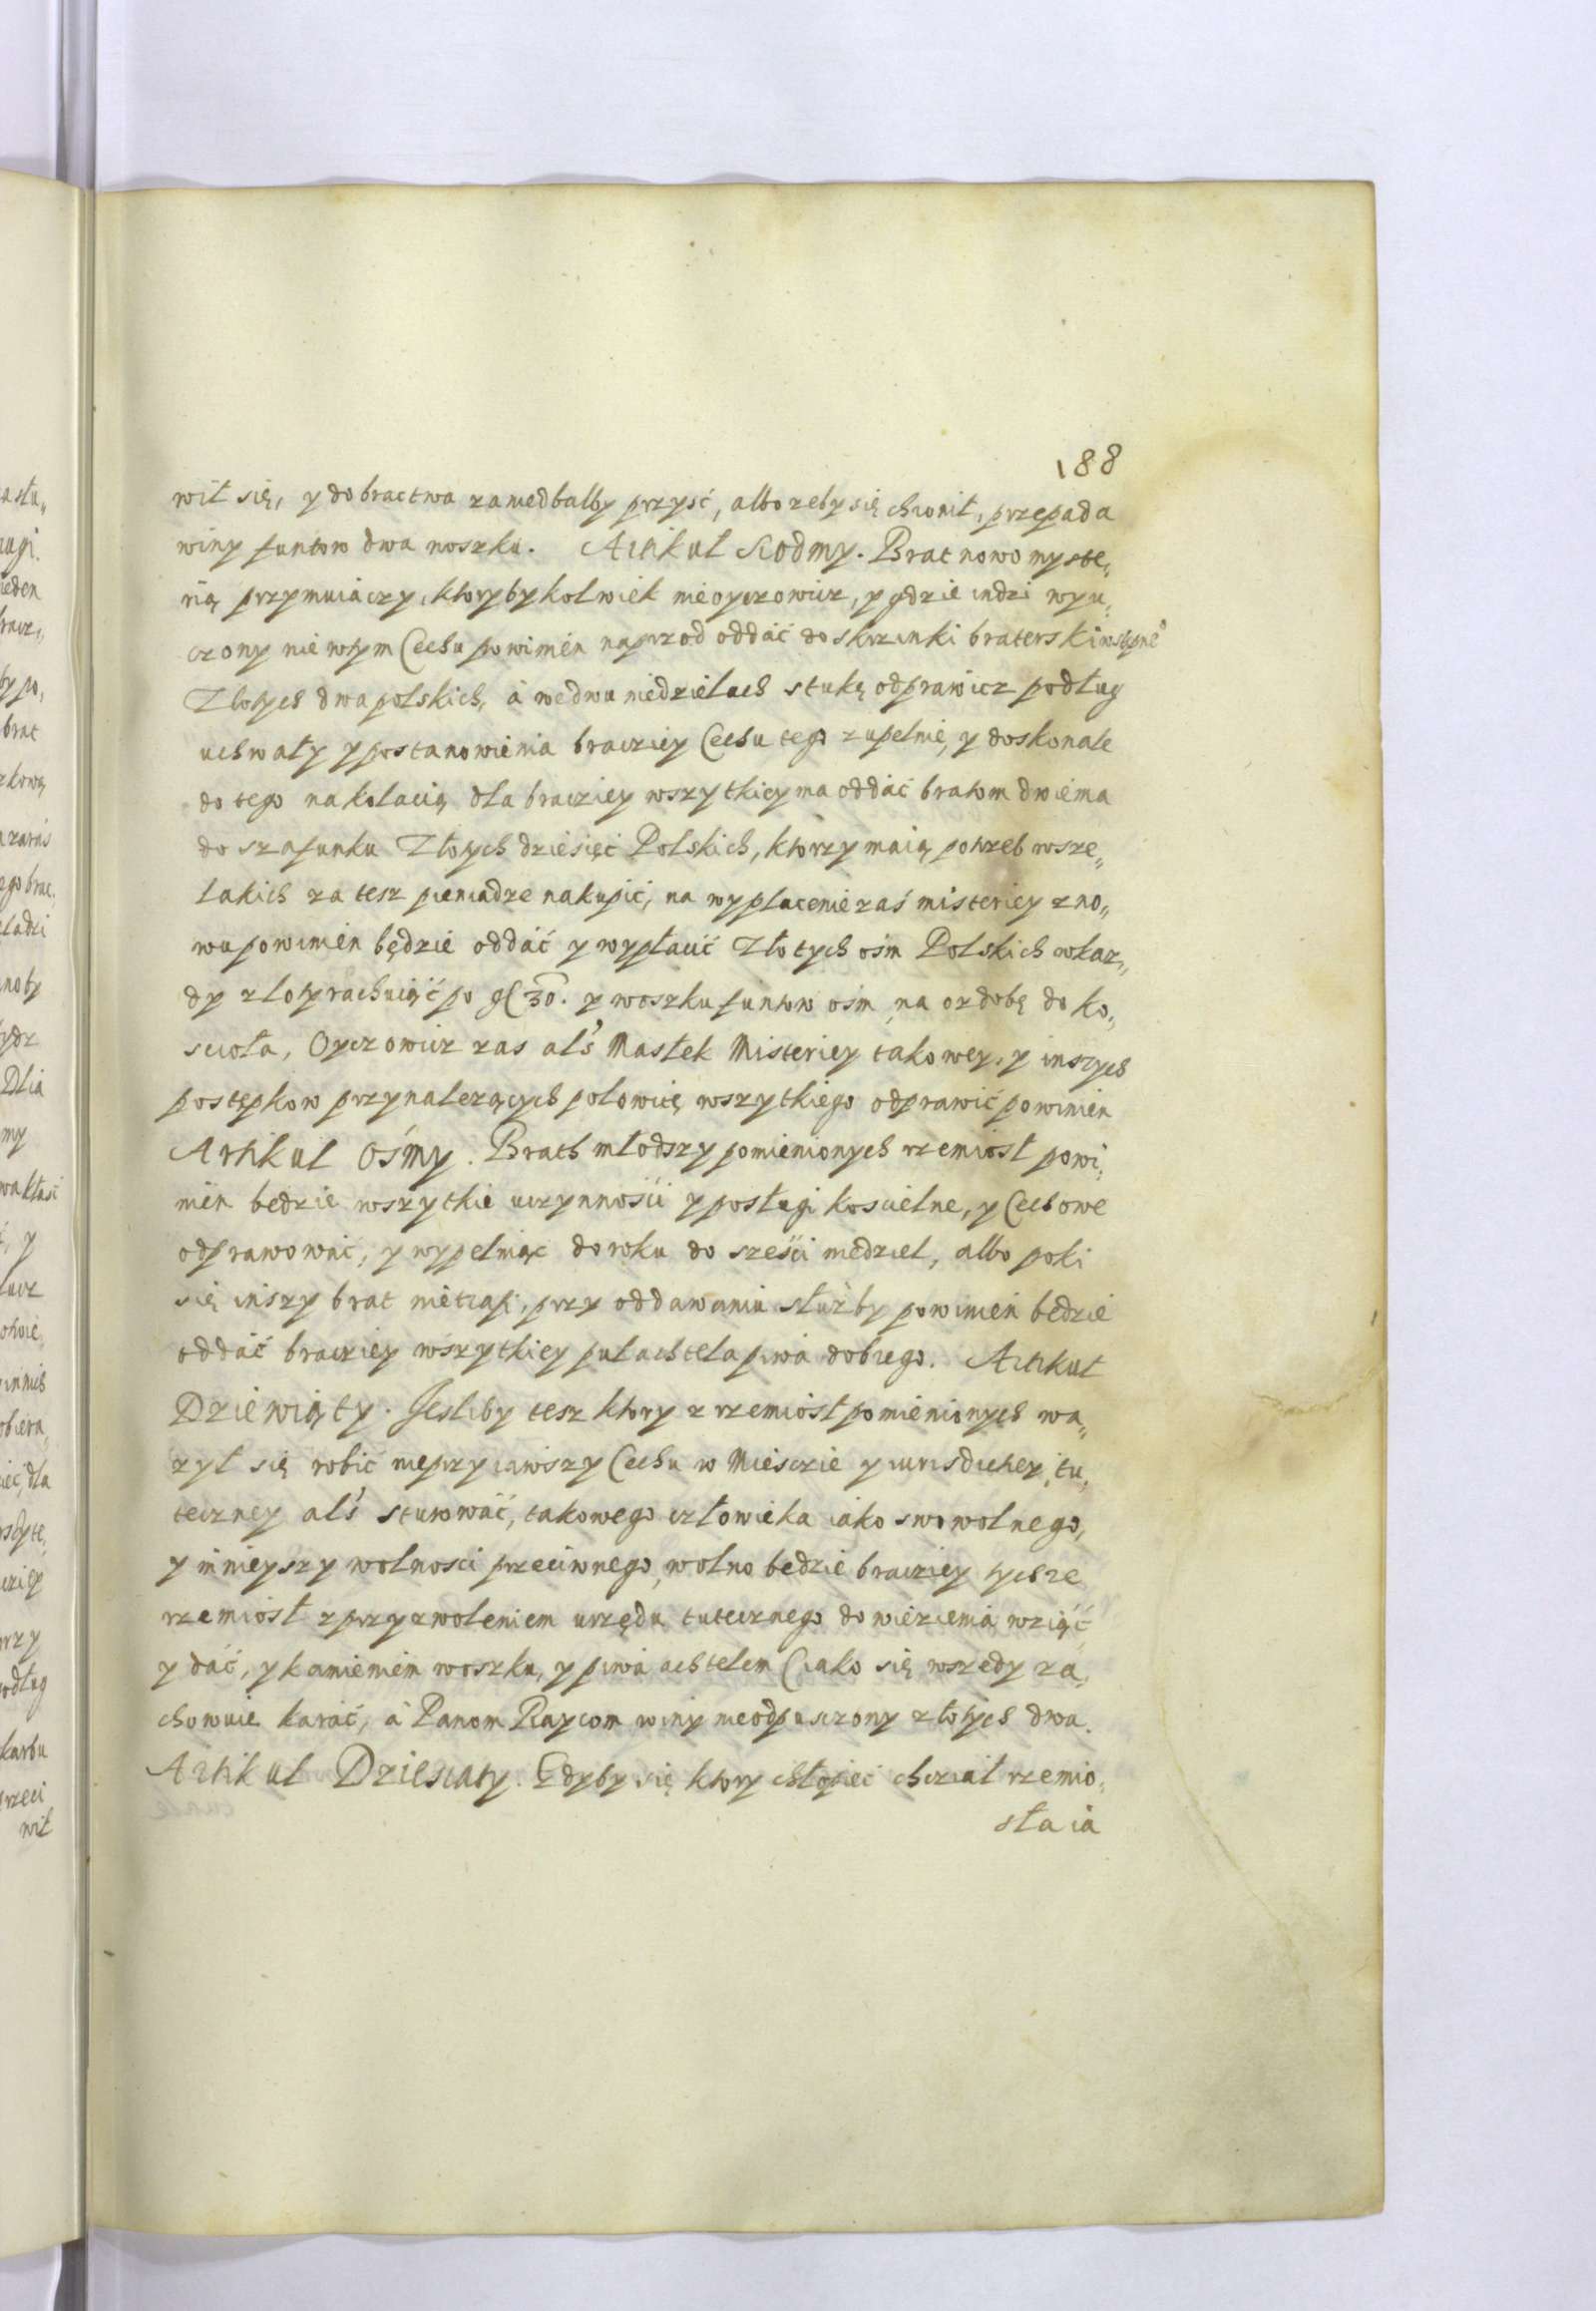 188
wił się, y do bractwa zaniedbałby przyść, albo żeby się chronił, przepada
winy funtow dwa woszku. Artikuł Siodmy. Brat nowo myste„
rią przymuiączy, ktorybykolwiek nieoyczowicz, y gdzie indzi wyu„
czony nie wtym Cechu powinien naprzod oddać do skrzinki braterski wstępné°
Złotych dwa polskich, á we dwu niedzielach stukę odprawicz podług
uchwały y postanowienia bracziey Cechu tego zupełnie, y doskonale
do tego na kolacią dla bracziey wszytkiey ma oddać bratom dwiema
do szafunku Złotych dziesięć Polskich, ktorzy maią potrzeb wsze„
lakich za tesz pieniadze nakupić, na wypłacenie zaś misteriey zno„
wu powinien będzie oddáć y wypłacić Złotych ośm Polskich w kaz„
dy złoty rachuiąć po gł 30. y woszku funtow ośm na ozdobę do ko„
scioła, Oyczowicz zas als Mastek Misteriey takowey, y inszych
postępkow przynalezących połowicę wszytkiego odprawić powinien
Artikuł Osmy. Brath młodszy pomienionych rzemiosł powi„
nien bedzie wszytkie uczynności y posługi koscielne, y Cechowe
odprawować, y wypełniąc do roku do sześci niedziel, albo poki
się inszy brat nietrafi, przy oddawaniu służby powinien bedzie
oddáć bracziey wszytkiey puł achtela piwa dobrego. Artikuł
Dziewiąty. Jesliby tesz ktory z rzemiosł pomienionych wa„
zył się robić nieprzyiąwszy Cechu w Miesczie y iurisdictiey tu„
teczney als sturować, takowego człowieka iako swowolnego,
y ninieyszy wolnosci przeciwnego, wolno bedzie bracziey tychze
rzemiosł z przyzwoleniem urzędu tutecznego do wiezienia wziąć
y dáć, y kamieniem woszku, y piwa achtelem (iako się wszedy za„
chowuie karáć, á Panom Raycom winy nieodpusczony złotych dwa.
Artikuł Dziesiaty. Gdyby się ktory chłopiec chcział rzemio„
sła ia